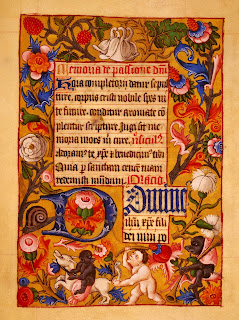 Memoria de passione dm̄
Hora completorij datur sepul
ture, corpus cristi nobile spes vi
te future, conditur aromate co
plentur scripture. Jugi sit me
moria mors mi cure, versicu.
Adoram' te xp̄e & benedicim' tibi
Quia p̲ sanctam crucē tuam
redemisti mūdum. Oracio
Domine
ihū xp̄e fili
dei uiui po